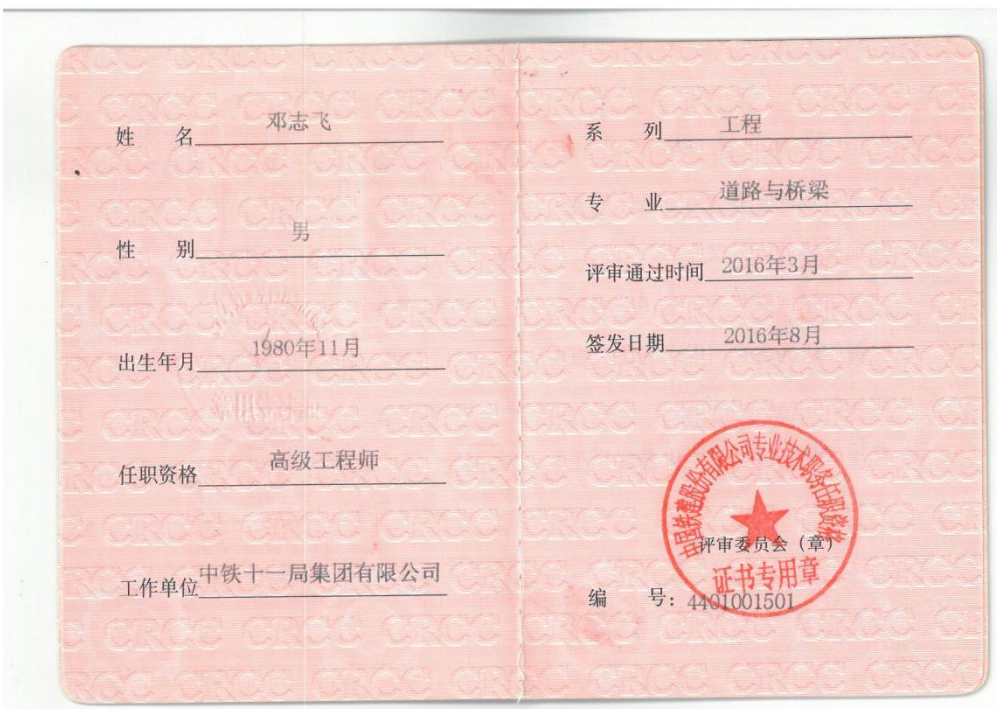 姓 名 邓志飞
性 别 男
出生年月 1980年11月
任职资格 高级工程师
工作单位 中铁十一局集团有限公司
系 列 工程
专 业 道路与桥梁
评审通过时间 2016年3月
签发日期 2016年8月
中国铁建股份有限公司专业技术职务任职资格
评审委员会（章）
证书专用章
编 号：4401001501
CRCC